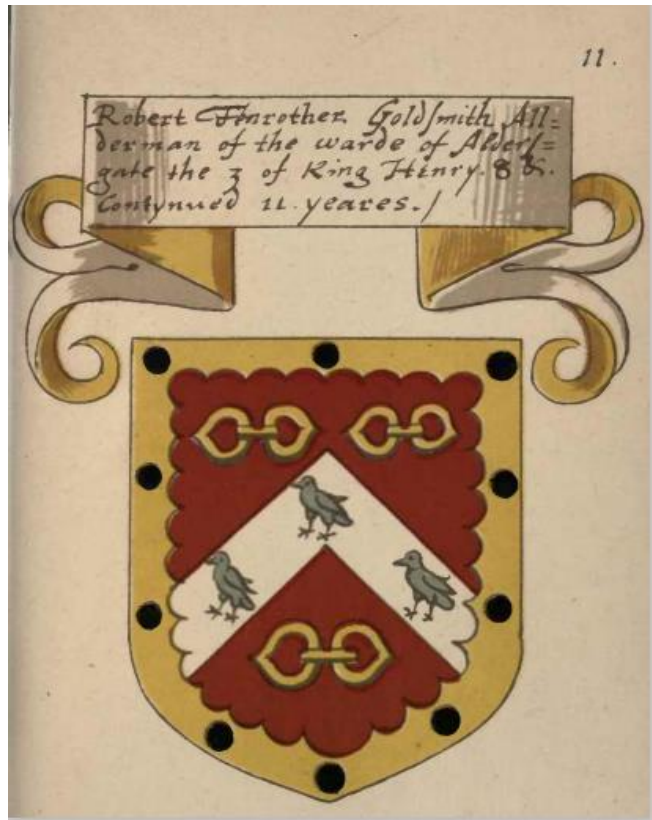 11.
Robert Fenrother Goldsmith All=
derman of the warde of Alders=
gate the 3 of King Henry. 8 &.
Contynued 11. yeares./